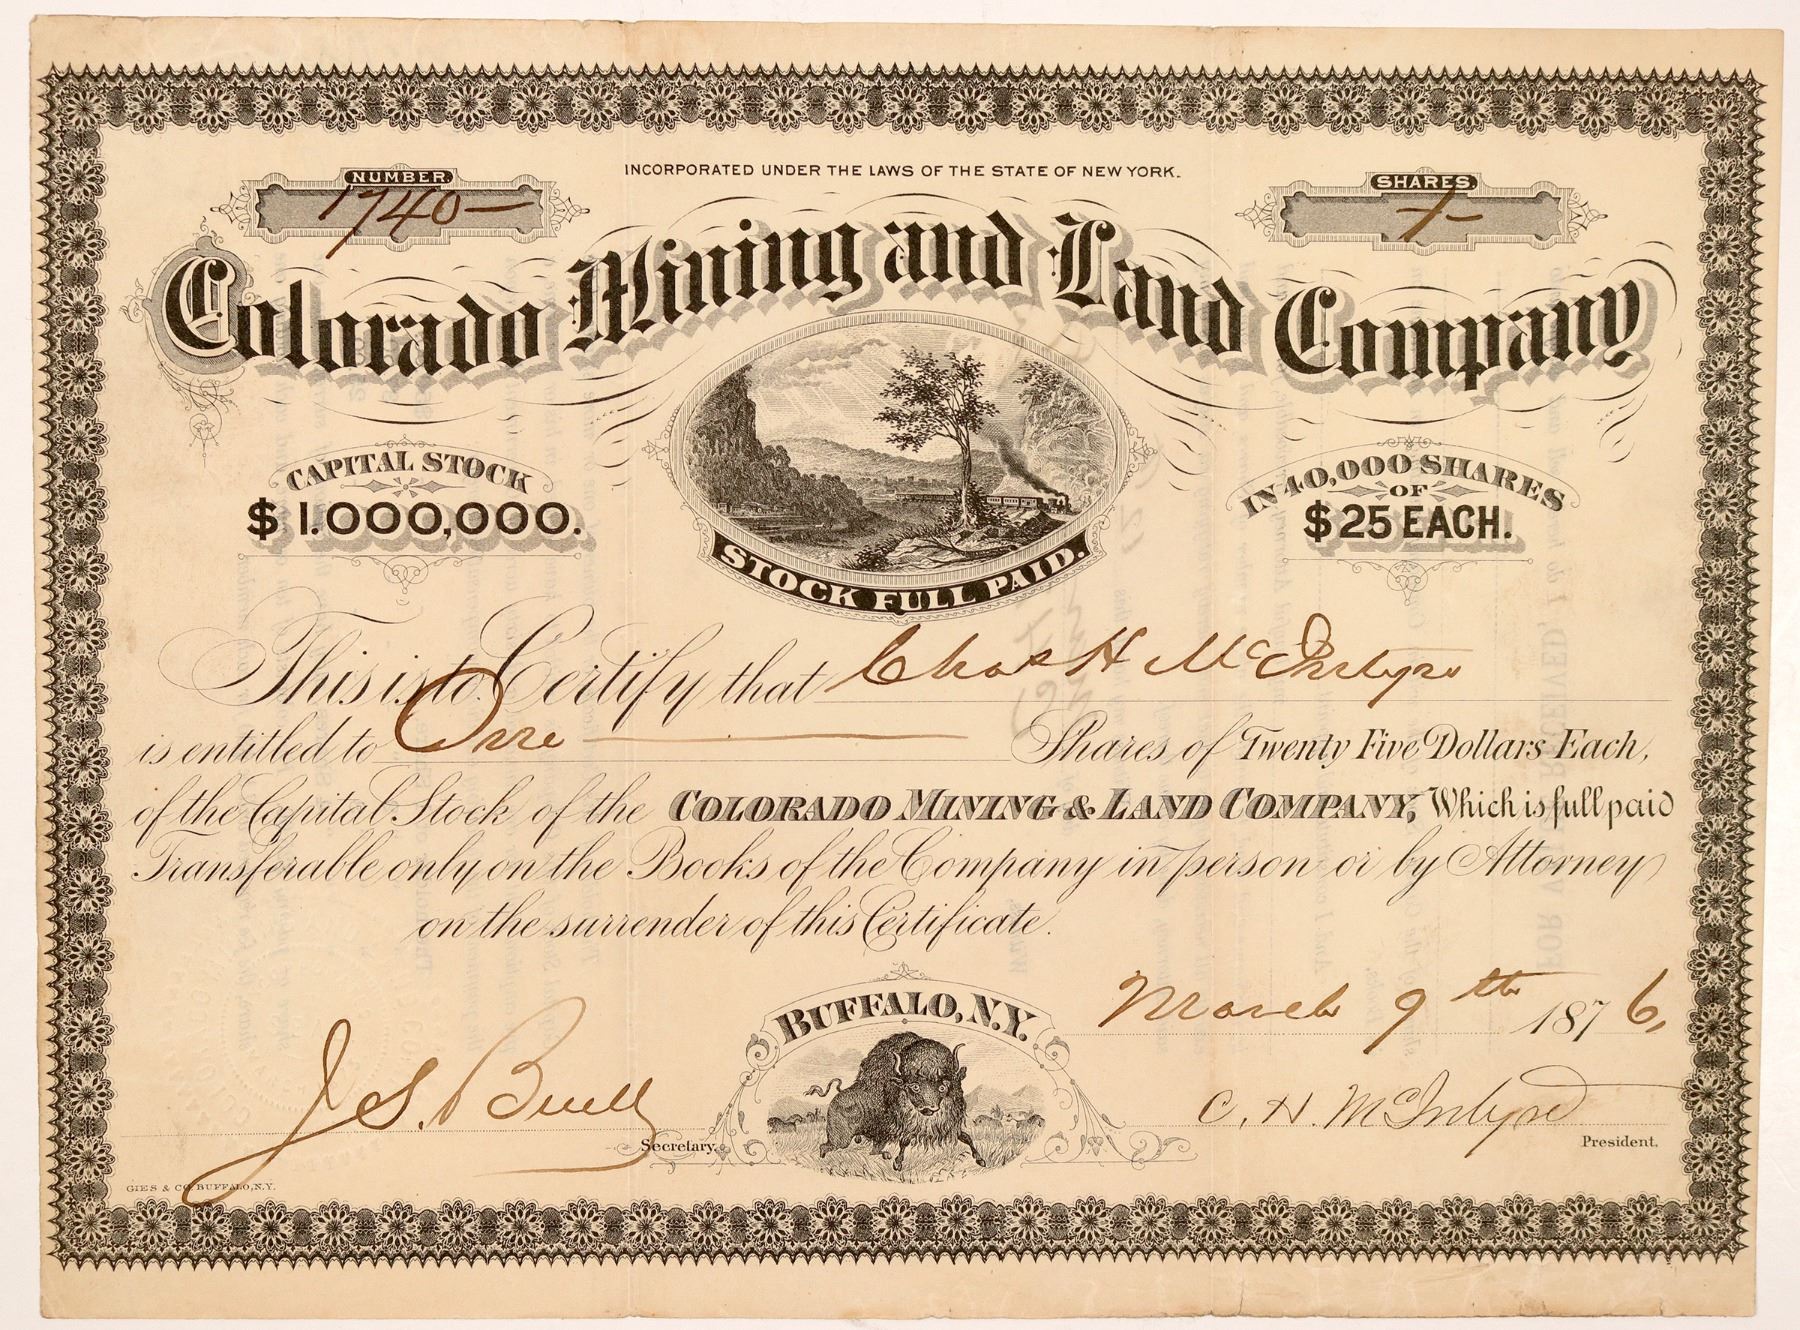 INCORPORATED UNDER THE LAWS OF THE STATE OF NEW YORK.
NUMBER
1740
SHARES.
1
Colorado Mining and Land Company
CAPITAL STOCK
$1.000,000.
IN 40,000 SHARES
OF
$25 EACH.
STOCK FULL PAID.
This is to Certify that Chas H McIntyre
is entitled to One Shares of Twenty Five Dollars Each,
of the Capital Stock of the COLORADO MINING & LAND COMPANY, Which is full paid
Transferable only on the Books of the Company in person or by Attorney
on the surrender of this Certificate.
BUFFALO, N.Y.
March 9th 1876,
J. S. Buell
Secretary.
C. H. McIntyre
President.
GIES & CO. BUFFALO, N.Y.